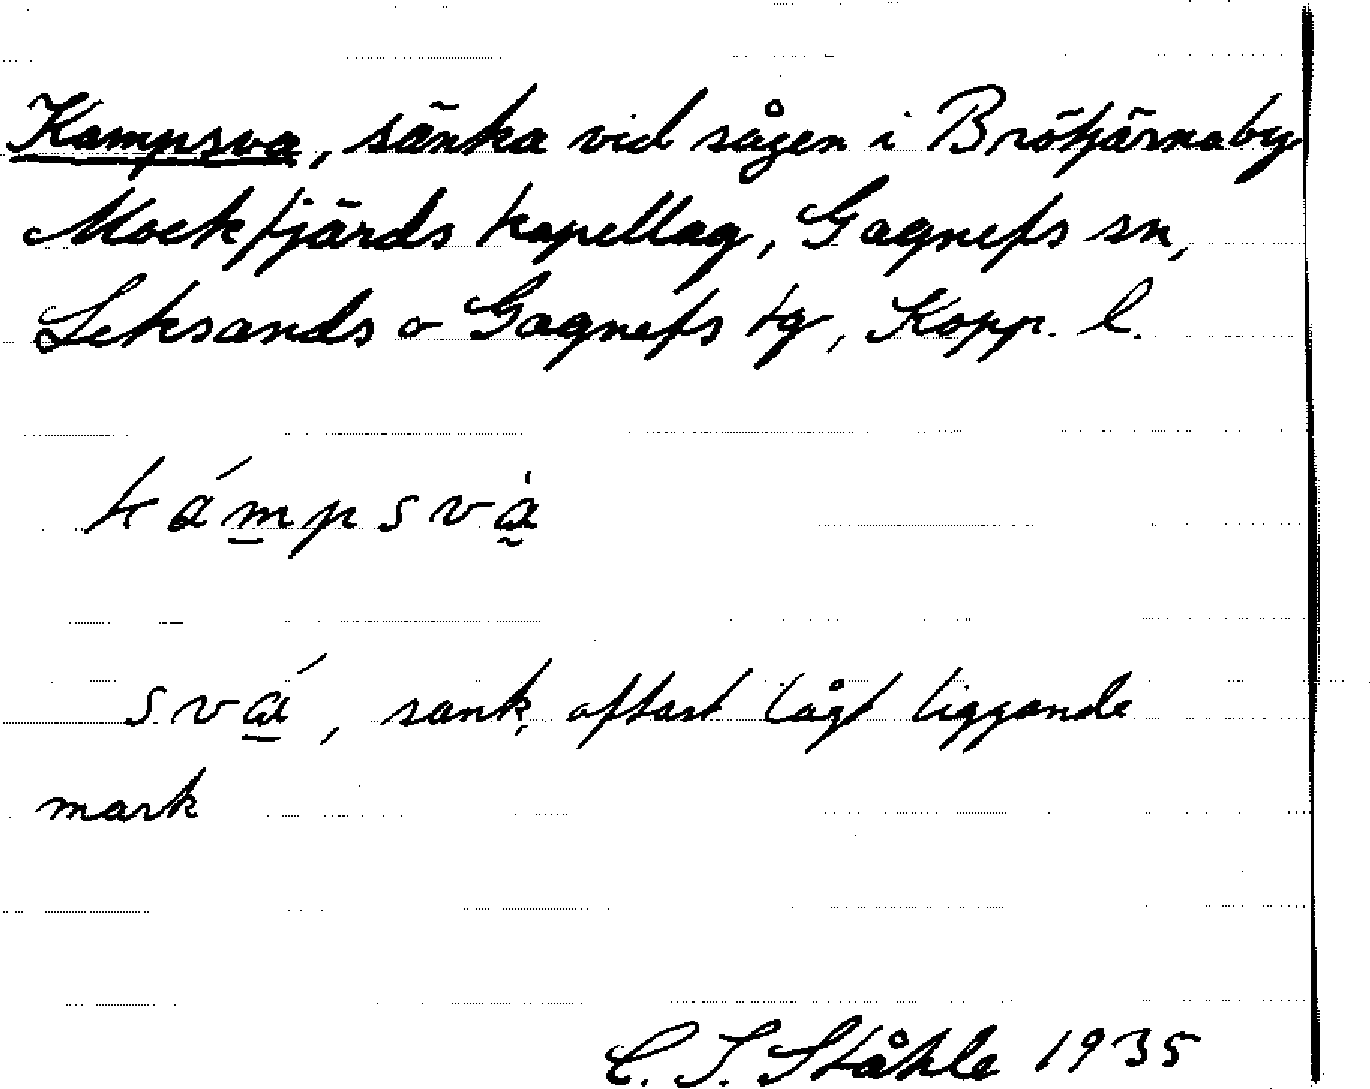 Kampsva, sänka vid sågen i Brötjärnaby
Mockfjärds kapellag, Gagnefs sn,
Leksands o Gagnefs tg, Kopp. l.
kámpsvà̰
svá, sank, oftast lågt liggande
mark
C. I. Ståhle 1935